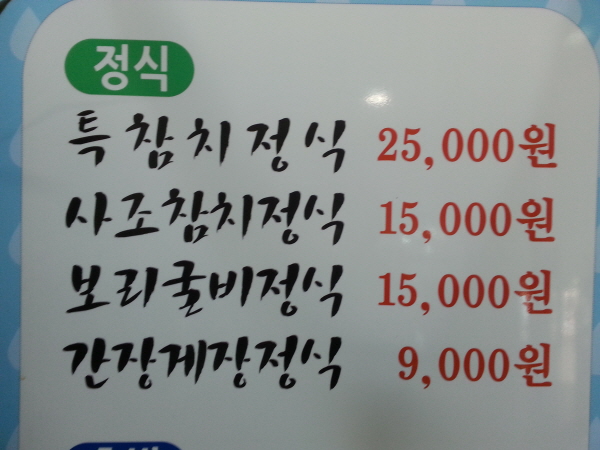 정식
특참치정식 25,000원
사조참치정식 15,000원
보리굴비정식 15,000원
간장게장정식 9,000원